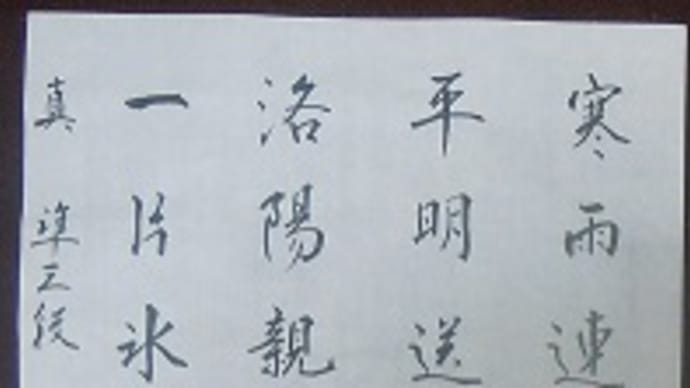 寒雨連
平明送
洛陽親
一片氷
真 準三段